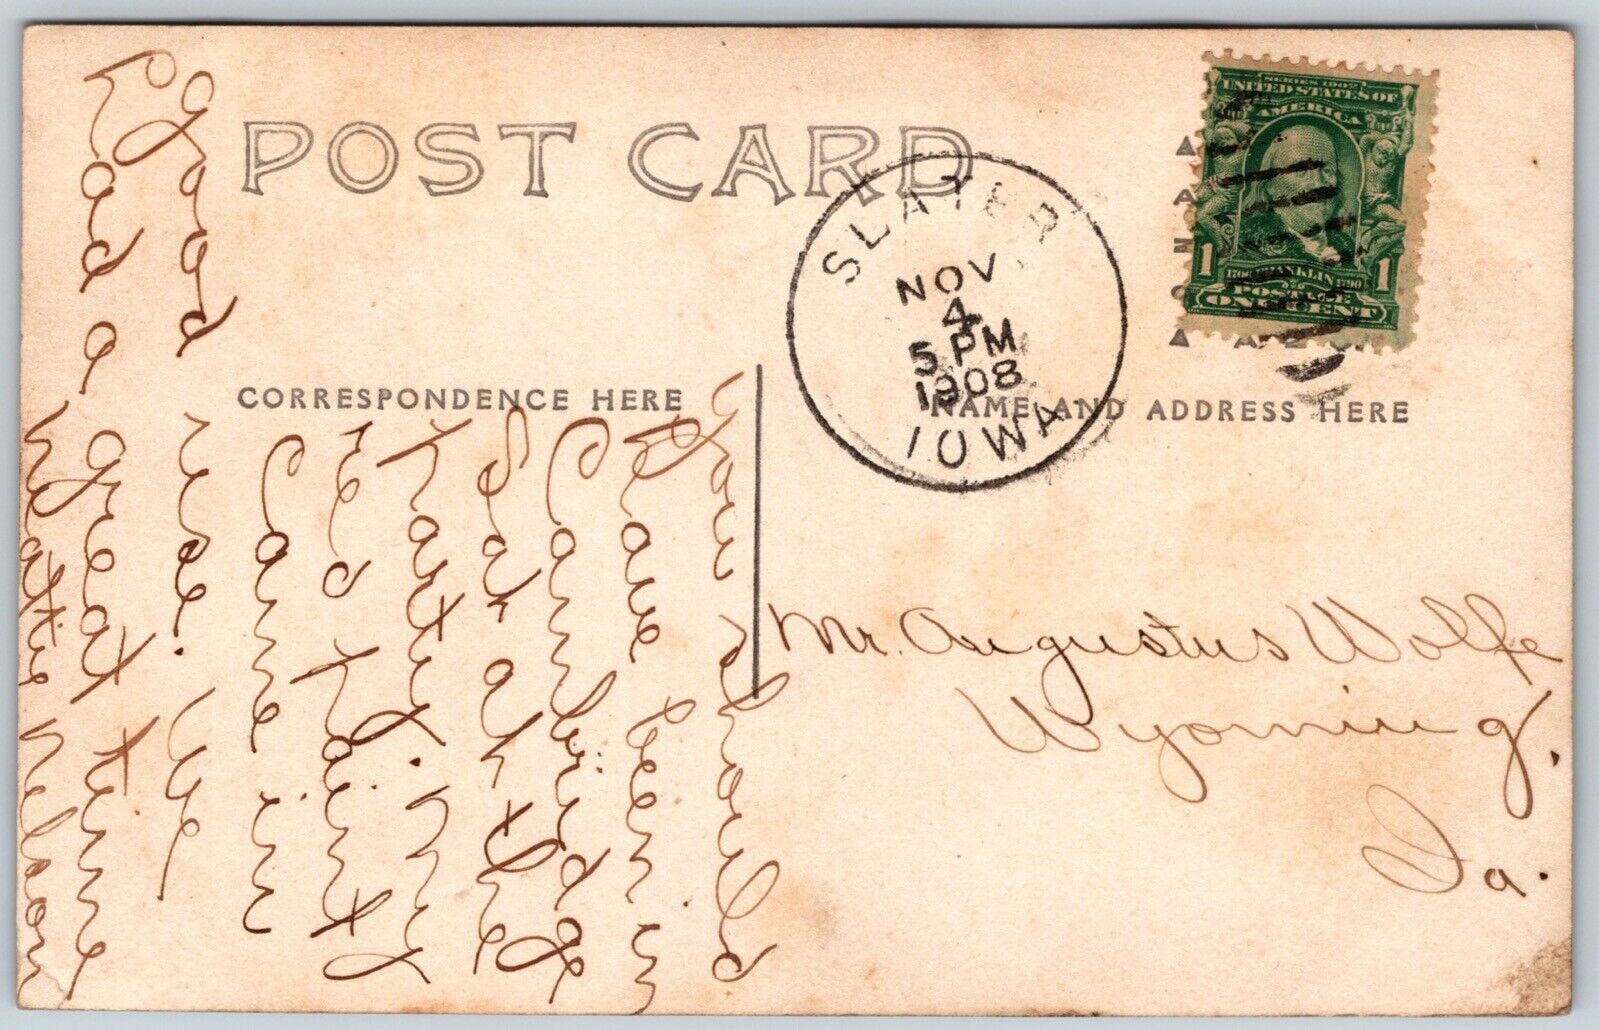 POST CARD
SLATER
NOV
4
5 PM
1908
IOWA
SERIES 1902
UNITED STATES OF
AMERICA
1 1706 FRANKLIN 1790 1
POSTAGE
ONE CENT
CORRESPONDENCE HERE
NAME AND ADDRESS HERE
You should
have been in
Cambridge
Sat at the
party. my
red paint
Came in
good use. We
had a great time
Hattie Nelson
Mr. Augustus Wolfe
Wyoming,
Ia.